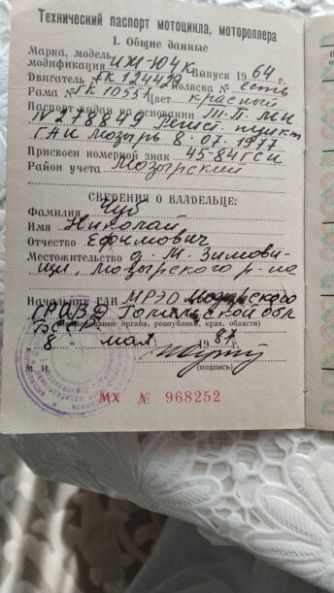 Технический паспорт мотоцикла, мотороллера
I. Общие данные
Марка, модель,
модификация ИЖ-ЮЧК Выпуск 1964 г.
Двигатель № ГК 124429 Коляска № есть
Рама № ГК 10551 Цвет красный
Паспорт выдан на основании
№ 278849 пункт
ГАИ Мозырь 8.07.1977
Присвоен номерной знак 45-84 ГСИ
Район учета Мозырский
СВЕДЕНИЯ О ВЛАДЕЛЬЦЕ:
Фамилия Чуб
Имя Николай
Отчество Ефимович
Местожительство д. М. Зимови-
щи, Мозырского р-на
Начальник ГАИ МРЭО Мозырского
Гомельской обл
органа, республики, края, области)
„ 8 " мая 1987 г.
(подпись)
М. П.
МХ № 968252